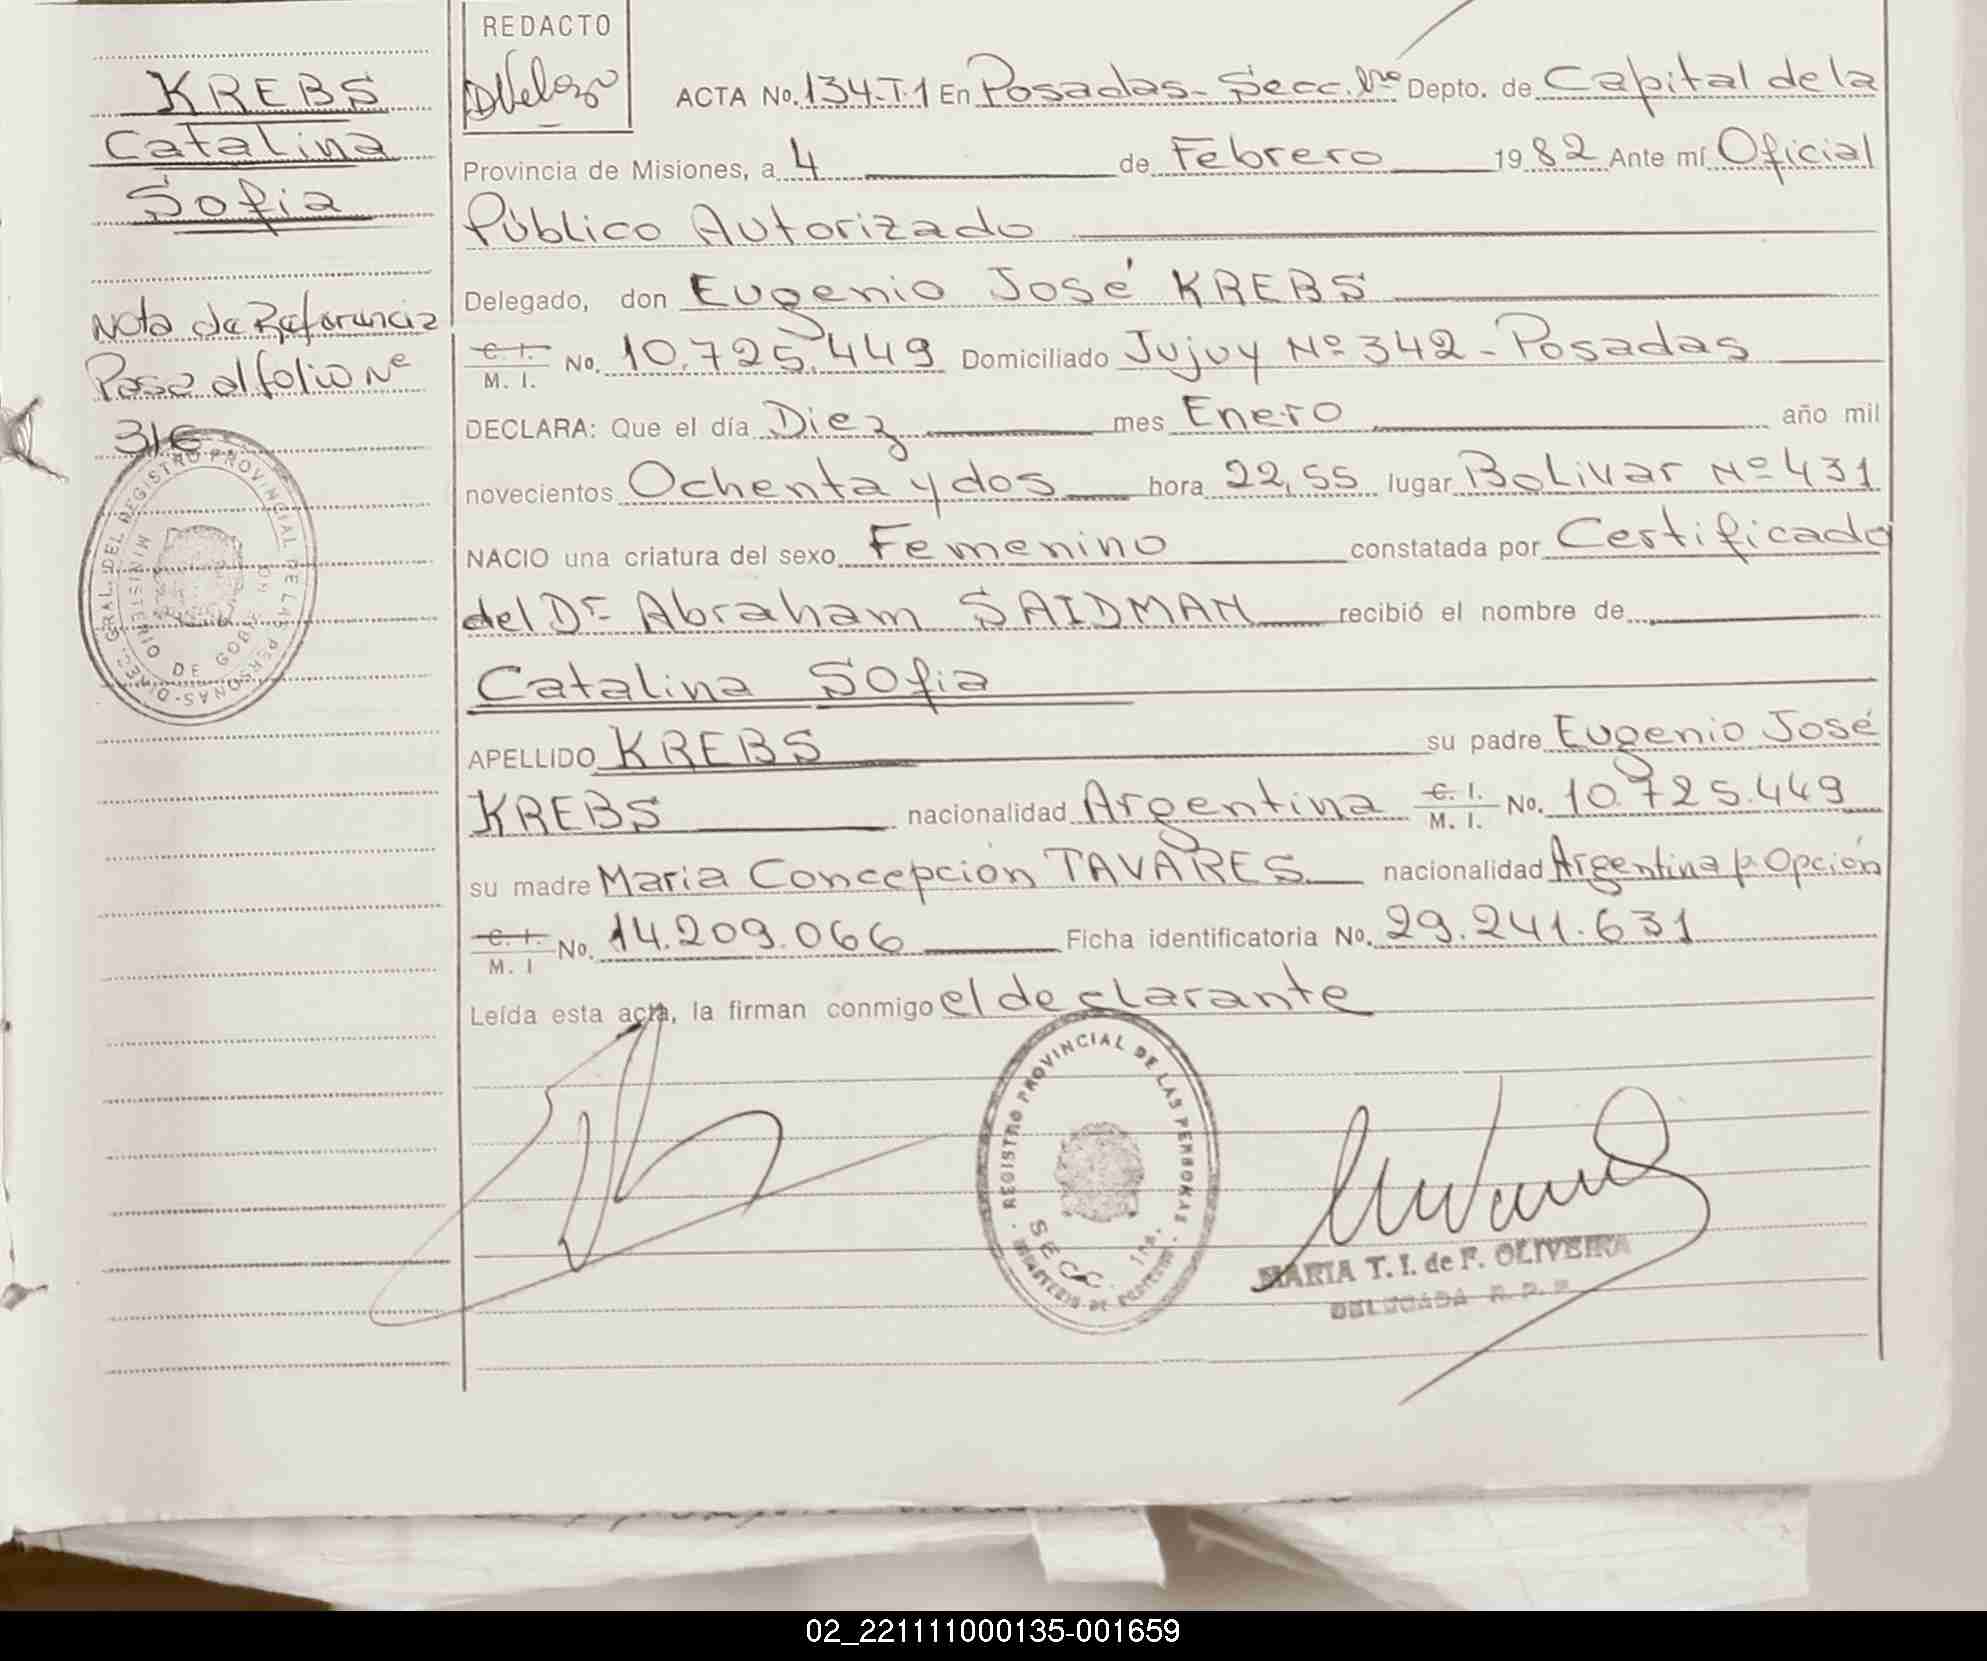 KREBS
Catalina
Sofia
Nota de Referencia
Pasa al folio Nº
316
DIREC. GRAL. DEL REGISTRO PROVINCIAL DE LAS PERSONAS
MINISTERIO DE GOBIERNO
REDACTO
ACTA No. 134-T.1 En Posadas - Secc. 1ra Depto. de Capital de la
Provincia de Misiones, a 4 de Febrero 1982 Ante mí Oficial
Público Autorizado
Delegado, don Eugenio José KREBS
C. I. M. I. No. 10.725.449 Domiciliado Jujuy Nº 342 - Posadas
DECLARA: Que el día Diez mes Enero año mil
novecientos Ochenta y dos hora 22,55 lugar Bolivar Nº 431
NACIO una criatura del sexo Femenino constatada por Certificado
del Dr Abraham SAIDMAN recibió el nombre de
Catalina Sofia
APELLIDO KREBS su padre Eugenio José
KREBS nacionalidad Argentina C. I. M. I. No. 10.725.449
su madre Maria Concepción TAVARES nacionalidad Argentina p. Opción
C. I. M. I No. 14.209.066 Ficha identificatoria No. 29.241.631
Leída esta acta, la firman conmigo el declarante
REGISTRO PROVINCIAL DE LAS PERSONAS
SECC. 1ra.
MARIA T. I. de F. OLIVEIRA
DELEGADA R. P. P.
02_221111000135-001659